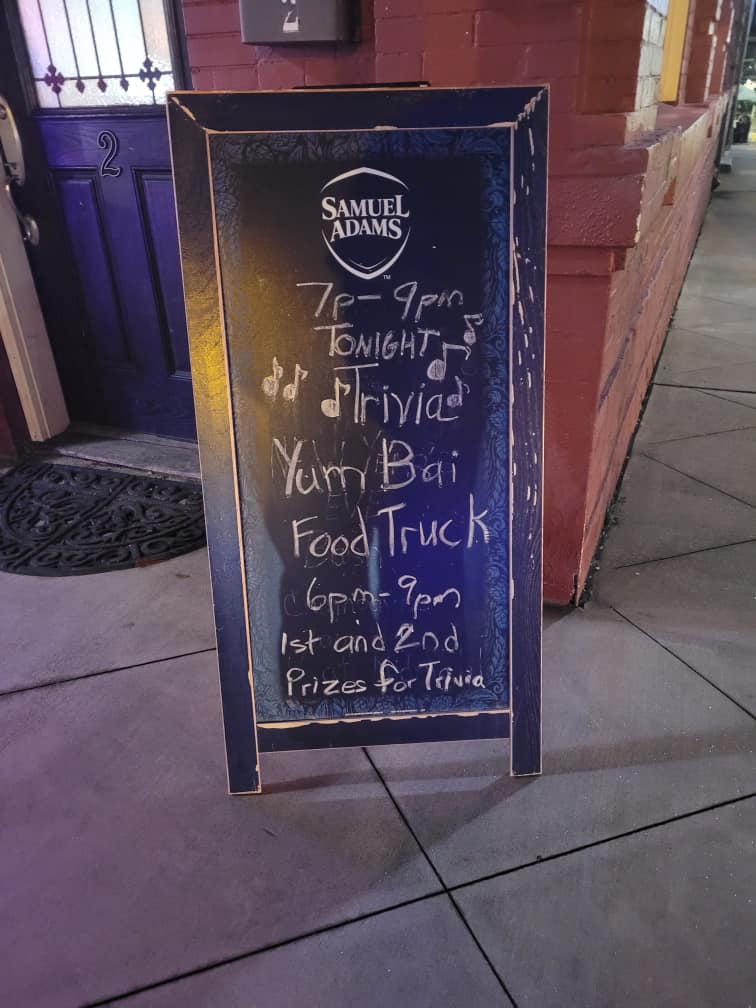 2
2
SAMUEL
ADAMS
TM
7p-9pm
TONIGHT
Trivia
Yum Bai
Food Truck
6pm-9pm
1st and 2nd
Prizes for Trivia